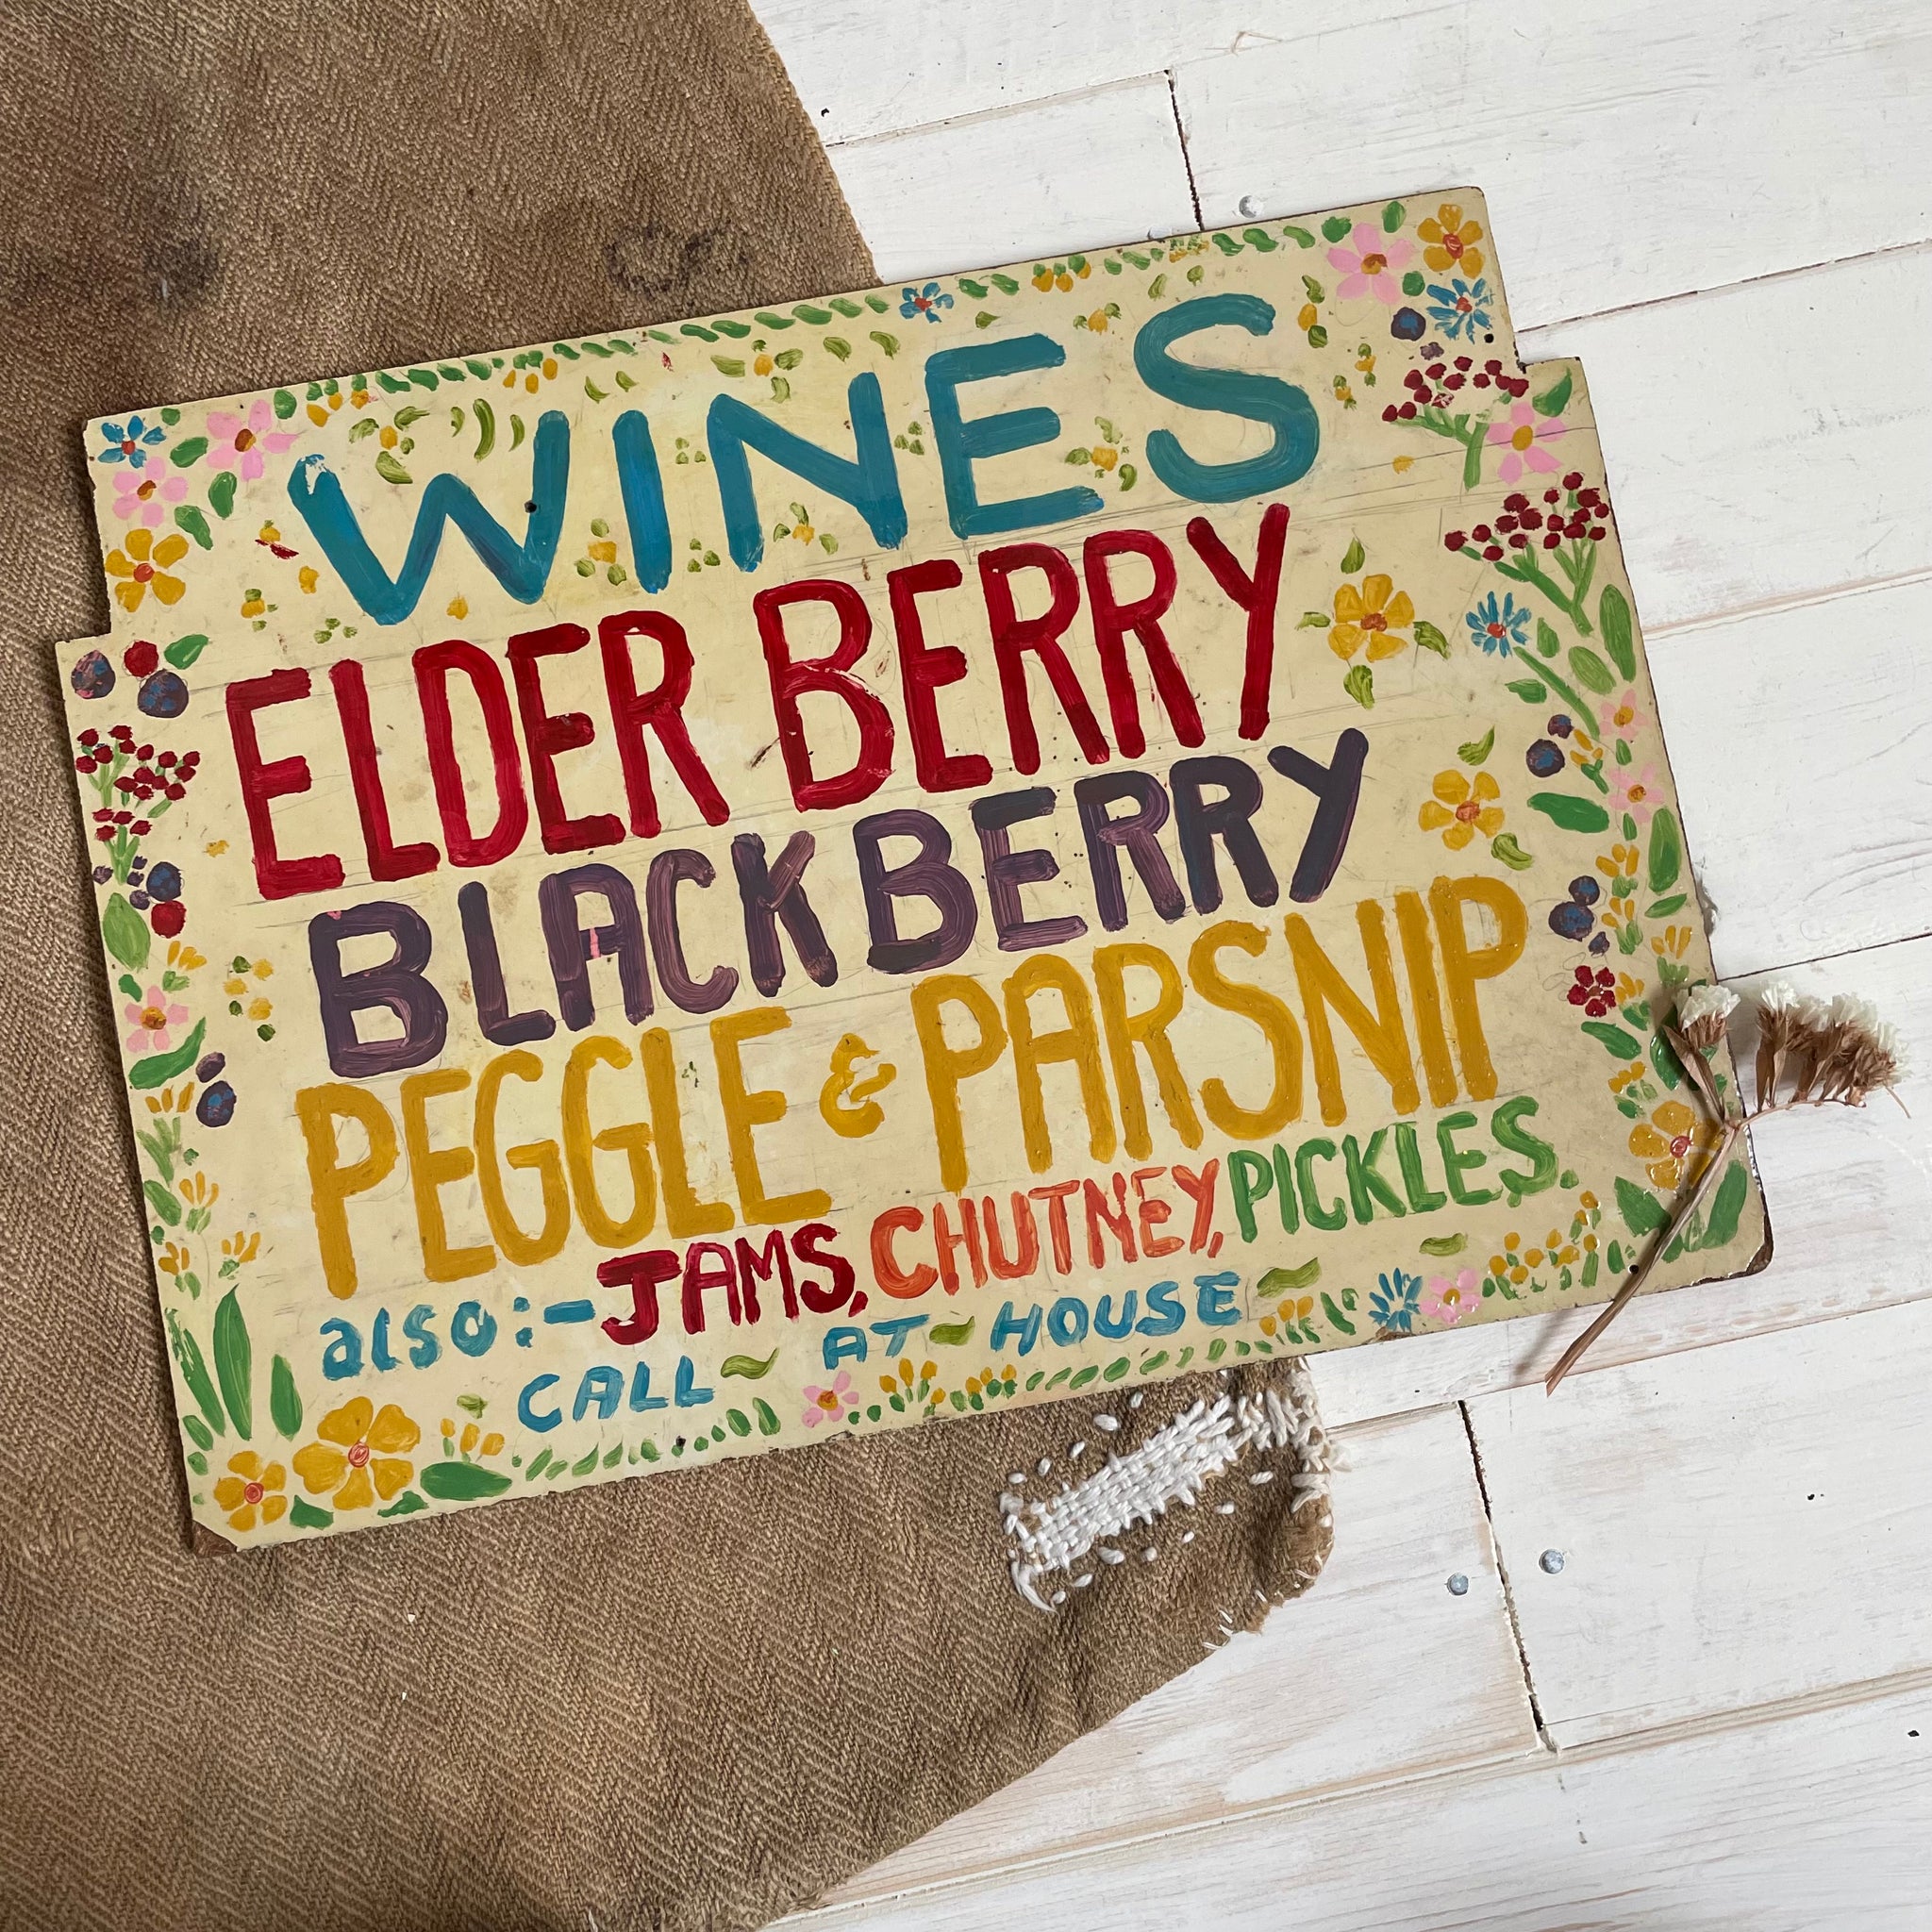 WINES
ELDER BERRY
BLACKBERRY
PEGGLE & PARSNIP
also:-JAMS, CHUTNEY, PICKLES.
CALL ~ AT ~ HOUSE ~